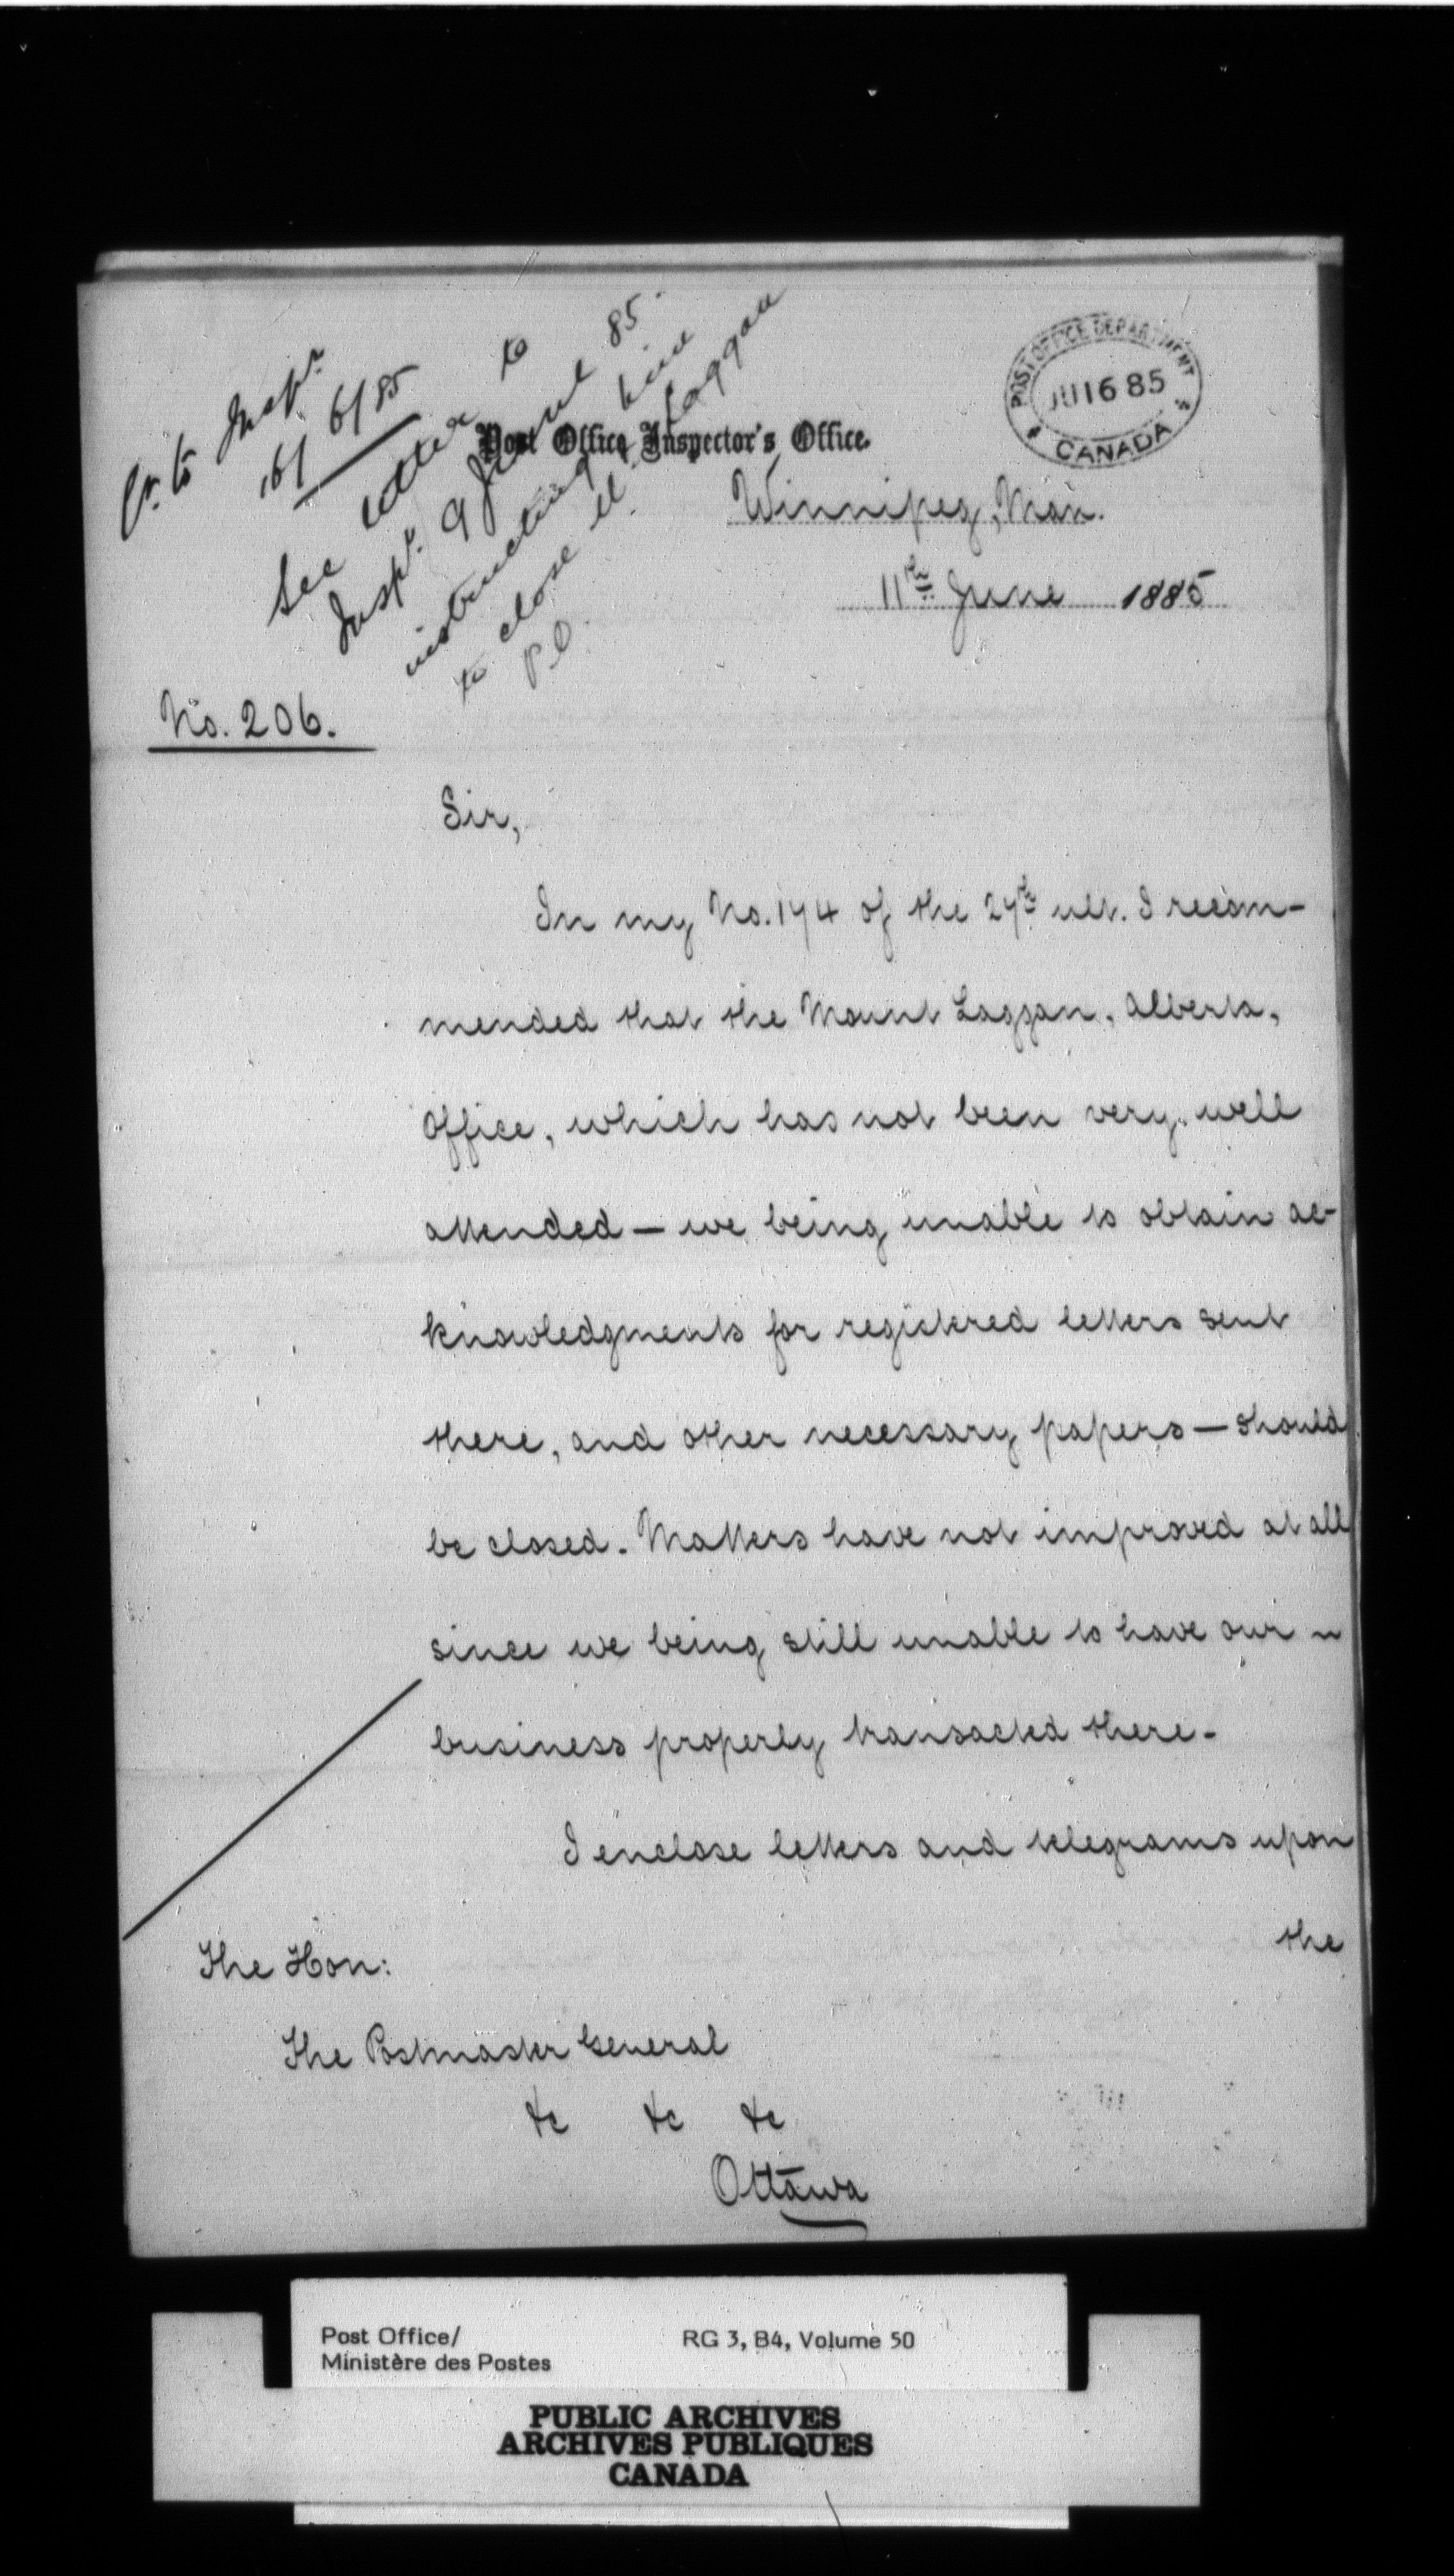 Cr. to Inspr.
16/6/85
See letter to
Inspr. 9 June 85.
instructing him
to close Mt. Laggan
P.O.
POST OFFICE DEPARTMENT
JU 16 85
CANADA
Post Office Inspector's Office.
Winnipeg, Man.
11th June 1885
No. 206.
Sir,
In my No. 174 of the 27th ult. I recom-
mended that the Mount Laggan, Alberta,
Office, which has not been very well
attended — we being unable to obtain ac-
knowledgments for registered letters sent
there, and other necessary papers — should
be closed. Matters have not improved at all
since we being still unable to have our
business properly transacted there.
I enclose letters and telegrams upon
the
The Hon:
The Postmaster General
&c &c &c
Ottawa
Post Office/
Ministère des Postes
RG 3, B4, Volume 50
PUBLIC ARCHIVES
ARCHIVES PUBLIQUES
CANADA